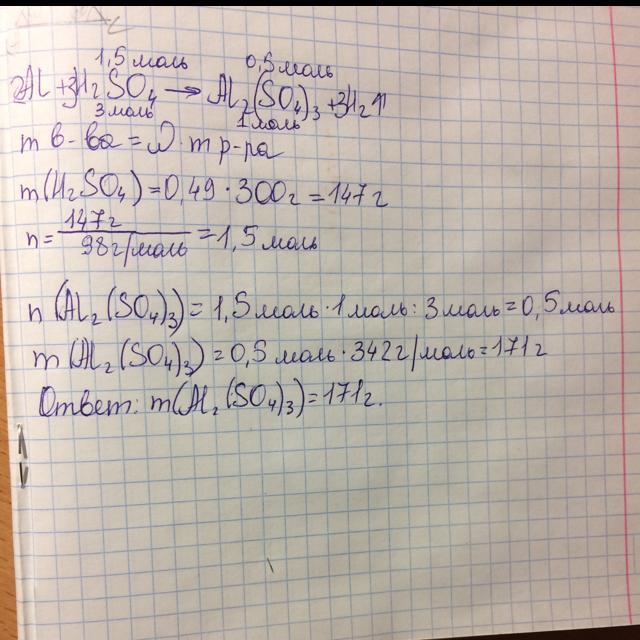 1,5 моль 0,5 моль
2Al + 3H₂SO₄ → Al₂(SO₄)₃ + 3H₂↑
3 моль 1 моль
m в-ва = ω · m р-ра
m(H₂SO₄) = 0,49 · 300г = 147г
n = 147г / 98г/моль = 1,5 моль
n(Al₂(SO₄)₃) = 1,5 моль · 1 моль : 3 моль = 0,5 моль
m(Al₂(SO₄)₃) = 0,5 моль · 342г/моль = 171г
Ответ: m(Al₂(SO₄)₃) = 171г.